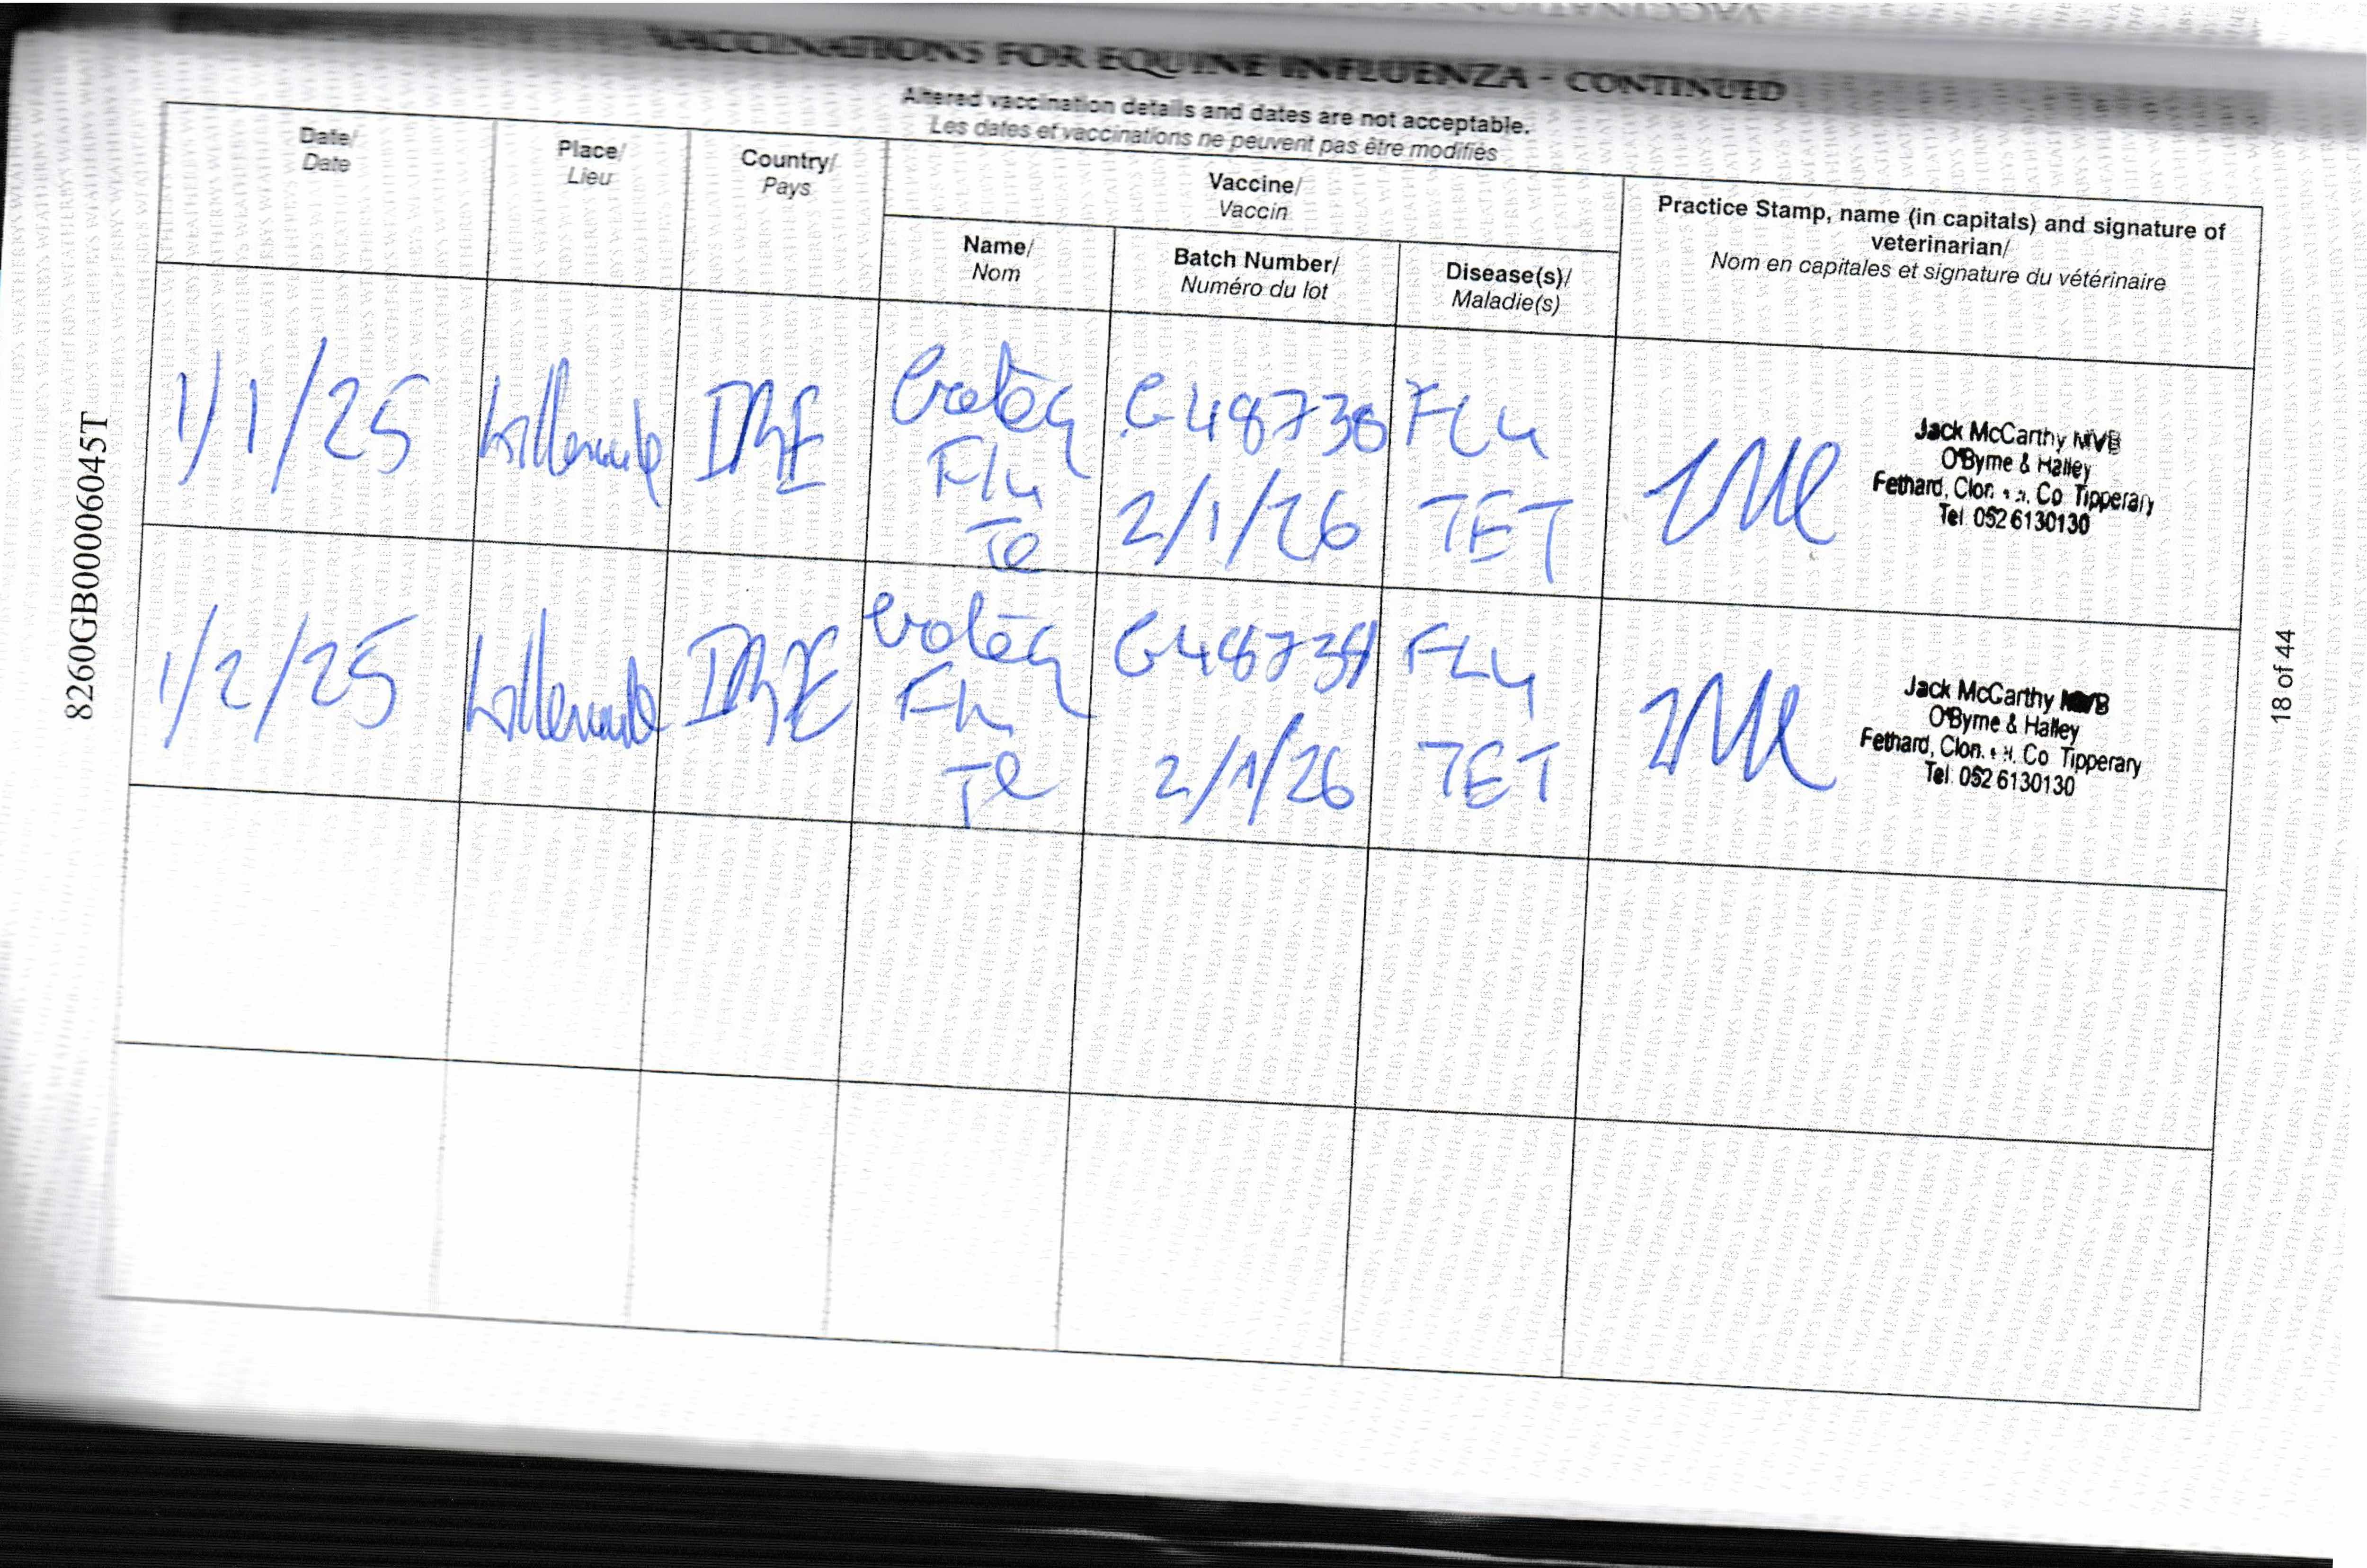 VACCINATIONS FOR EQUINE INFLUENZA - CONTINUED
Altered vaccination details and dates are not acceptable.
Les dates et vaccinations ne peuvent pas être modifiés
Date/
Date
Place/
Lieu
Country/
Pays
Vaccine/
Vaccin
Name/
Nom
Batch Number/
Numéro du lot
Disease(s)/
Maladie(s)
Practice Stamp, name (in capitals) and signature of
veterinarian/
Nom en capitales et signature du vétérinaire
1/1/25
IRE
Flu
Te
2/1/26
FLu
TET
Jack McCarthy MVB
O'Byrne & Halley
Fethard, Co Tipperary
Tel 052 6130130
1/2/25
IRE
Flu
Te
2/1/26
FLu
TET
Jack McCarthy
O'Byrne & Halley
Fethard, Co Tipperary
Tel. 052 6130130
8260GB00006045T
18 of 44